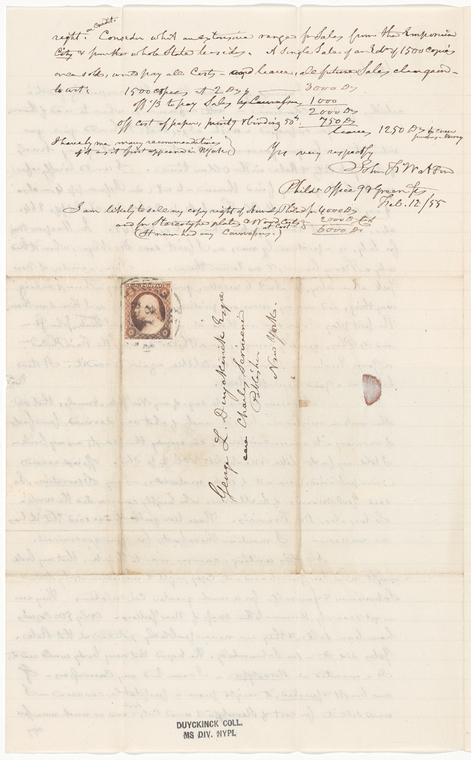 or credit.
right. Consider what an extensive range for Sales from the Emporium
City & further whole State besides. A single Sale of an Edn of 1500 copies
even sold, wd pay all Costs - and leave, all future Sales clear gain -
to wit: 1500 copies at 2 Ds 3000 Ds
off ⅓ to pay Sales by Canvassing 1000
2000 Ds
off cost of paper, printg & binding 50cts 750 Ds
leaves 1250 Ds to cover
I have by me many recommendations
of it as it first appeared in N York
Yrs very respectfy
John F. Watson
Philad Office 9 &
Feb. 12/55
I am likely to sell my copy right of Annals Philad for 4000 Ds
and for Stereotype plates & Wood Cuts at cost 2000 Ds
6000 Ds
(It now has my Canvassing.)
George L. Duyckinck Esqre
care Charles Scribner
Publisher
New York.
DUYCKINCK COLL.
MS DIV. NYPL